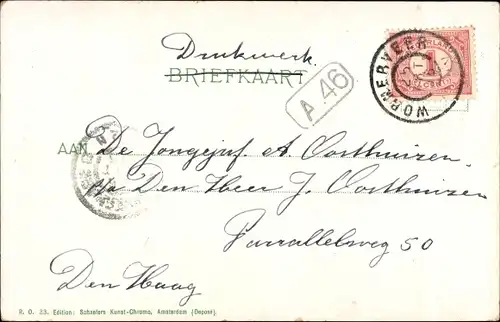 Drukwerk
BRIEFKAART
A.46
WORMERVEER
1
AAN De Jongejuf. A Oosthuizen
p/a Den Heer J. Oosthuizen
Parrallelsweg 50
Den Haag
R. O. 33. Edition: Schaefers Kunst-Chromo, Amsterdam (Deposé).